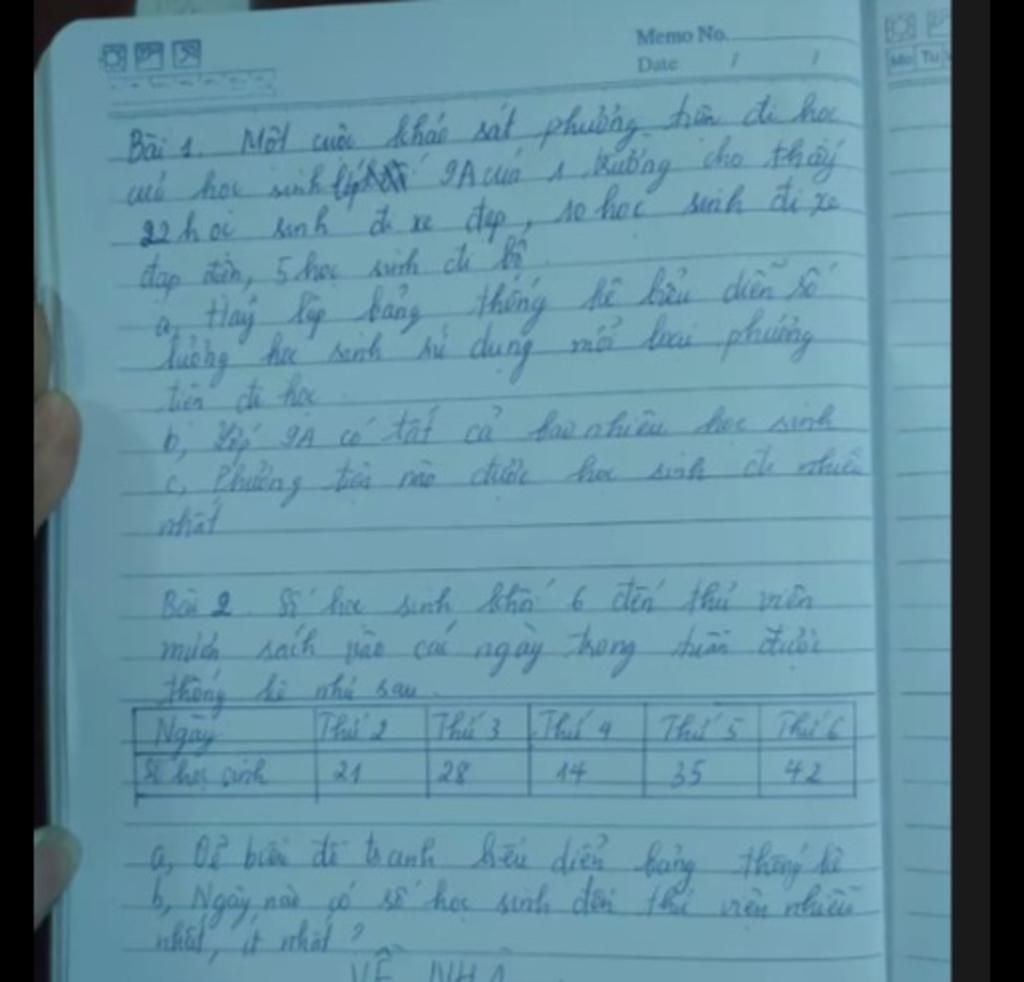 Memo No.
Date / /
Mo Tu
Bài 1. Một cuộc khảo sát phương tiện đi học
của học sinh lớp 9A của 1 trường cho thấy
22 học sinh đi xe đạp, 10 học sinh đi xe
đạp điện, 5 học sinh đi bộ.
a, Hãy lập bảng thống kê biểu diễn số
lượng học sinh sử dụng mỗi loại phương
tiện đi học
b, Lớp 9A có tất cả bao nhiêu học sinh
c, Phương tiện nào được học sinh đi nhiều
nhất
Bài 2. Số học sinh khối 6 đến thư viện
mượn sách vào các ngày trong tuần được
thống kê như sau.
Ngày Thứ 2 Thứ 3 Thứ 4 Thứ 5 Thứ 6
Số học sinh 21 28 14 35 42
a, Vẽ biểu đồ tranh biểu diễn bảng thống kê
b, Ngày nào có số học sinh đến thư viện nhiều
nhất, ít nhất?
VỀ NHÀ